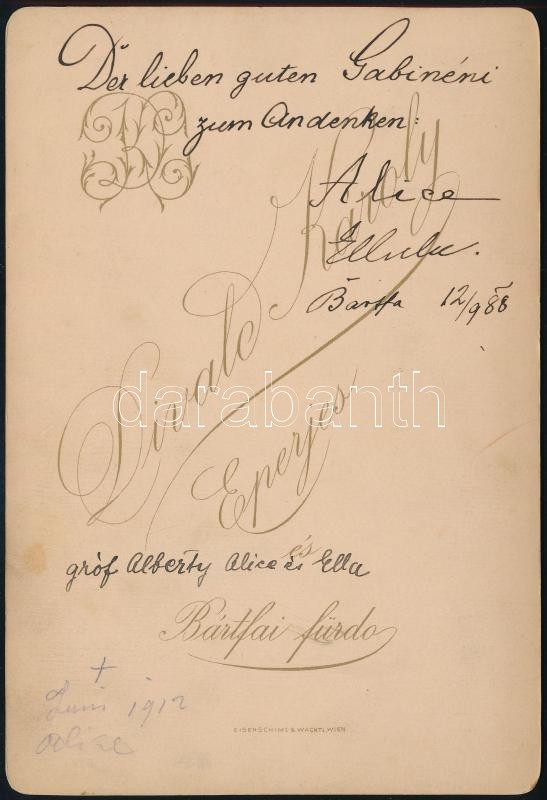 Der lieben guten Gabinéni
zum Andenken:
Alice
Bártfa 12/9 88
Divald Károly
darabanth
Eperjes
és
gróf Alberty Alice és Ella
Bártfai fürdo
+
Juni 1912
Alice
EISENSCHIML & WACHTL, WIEN